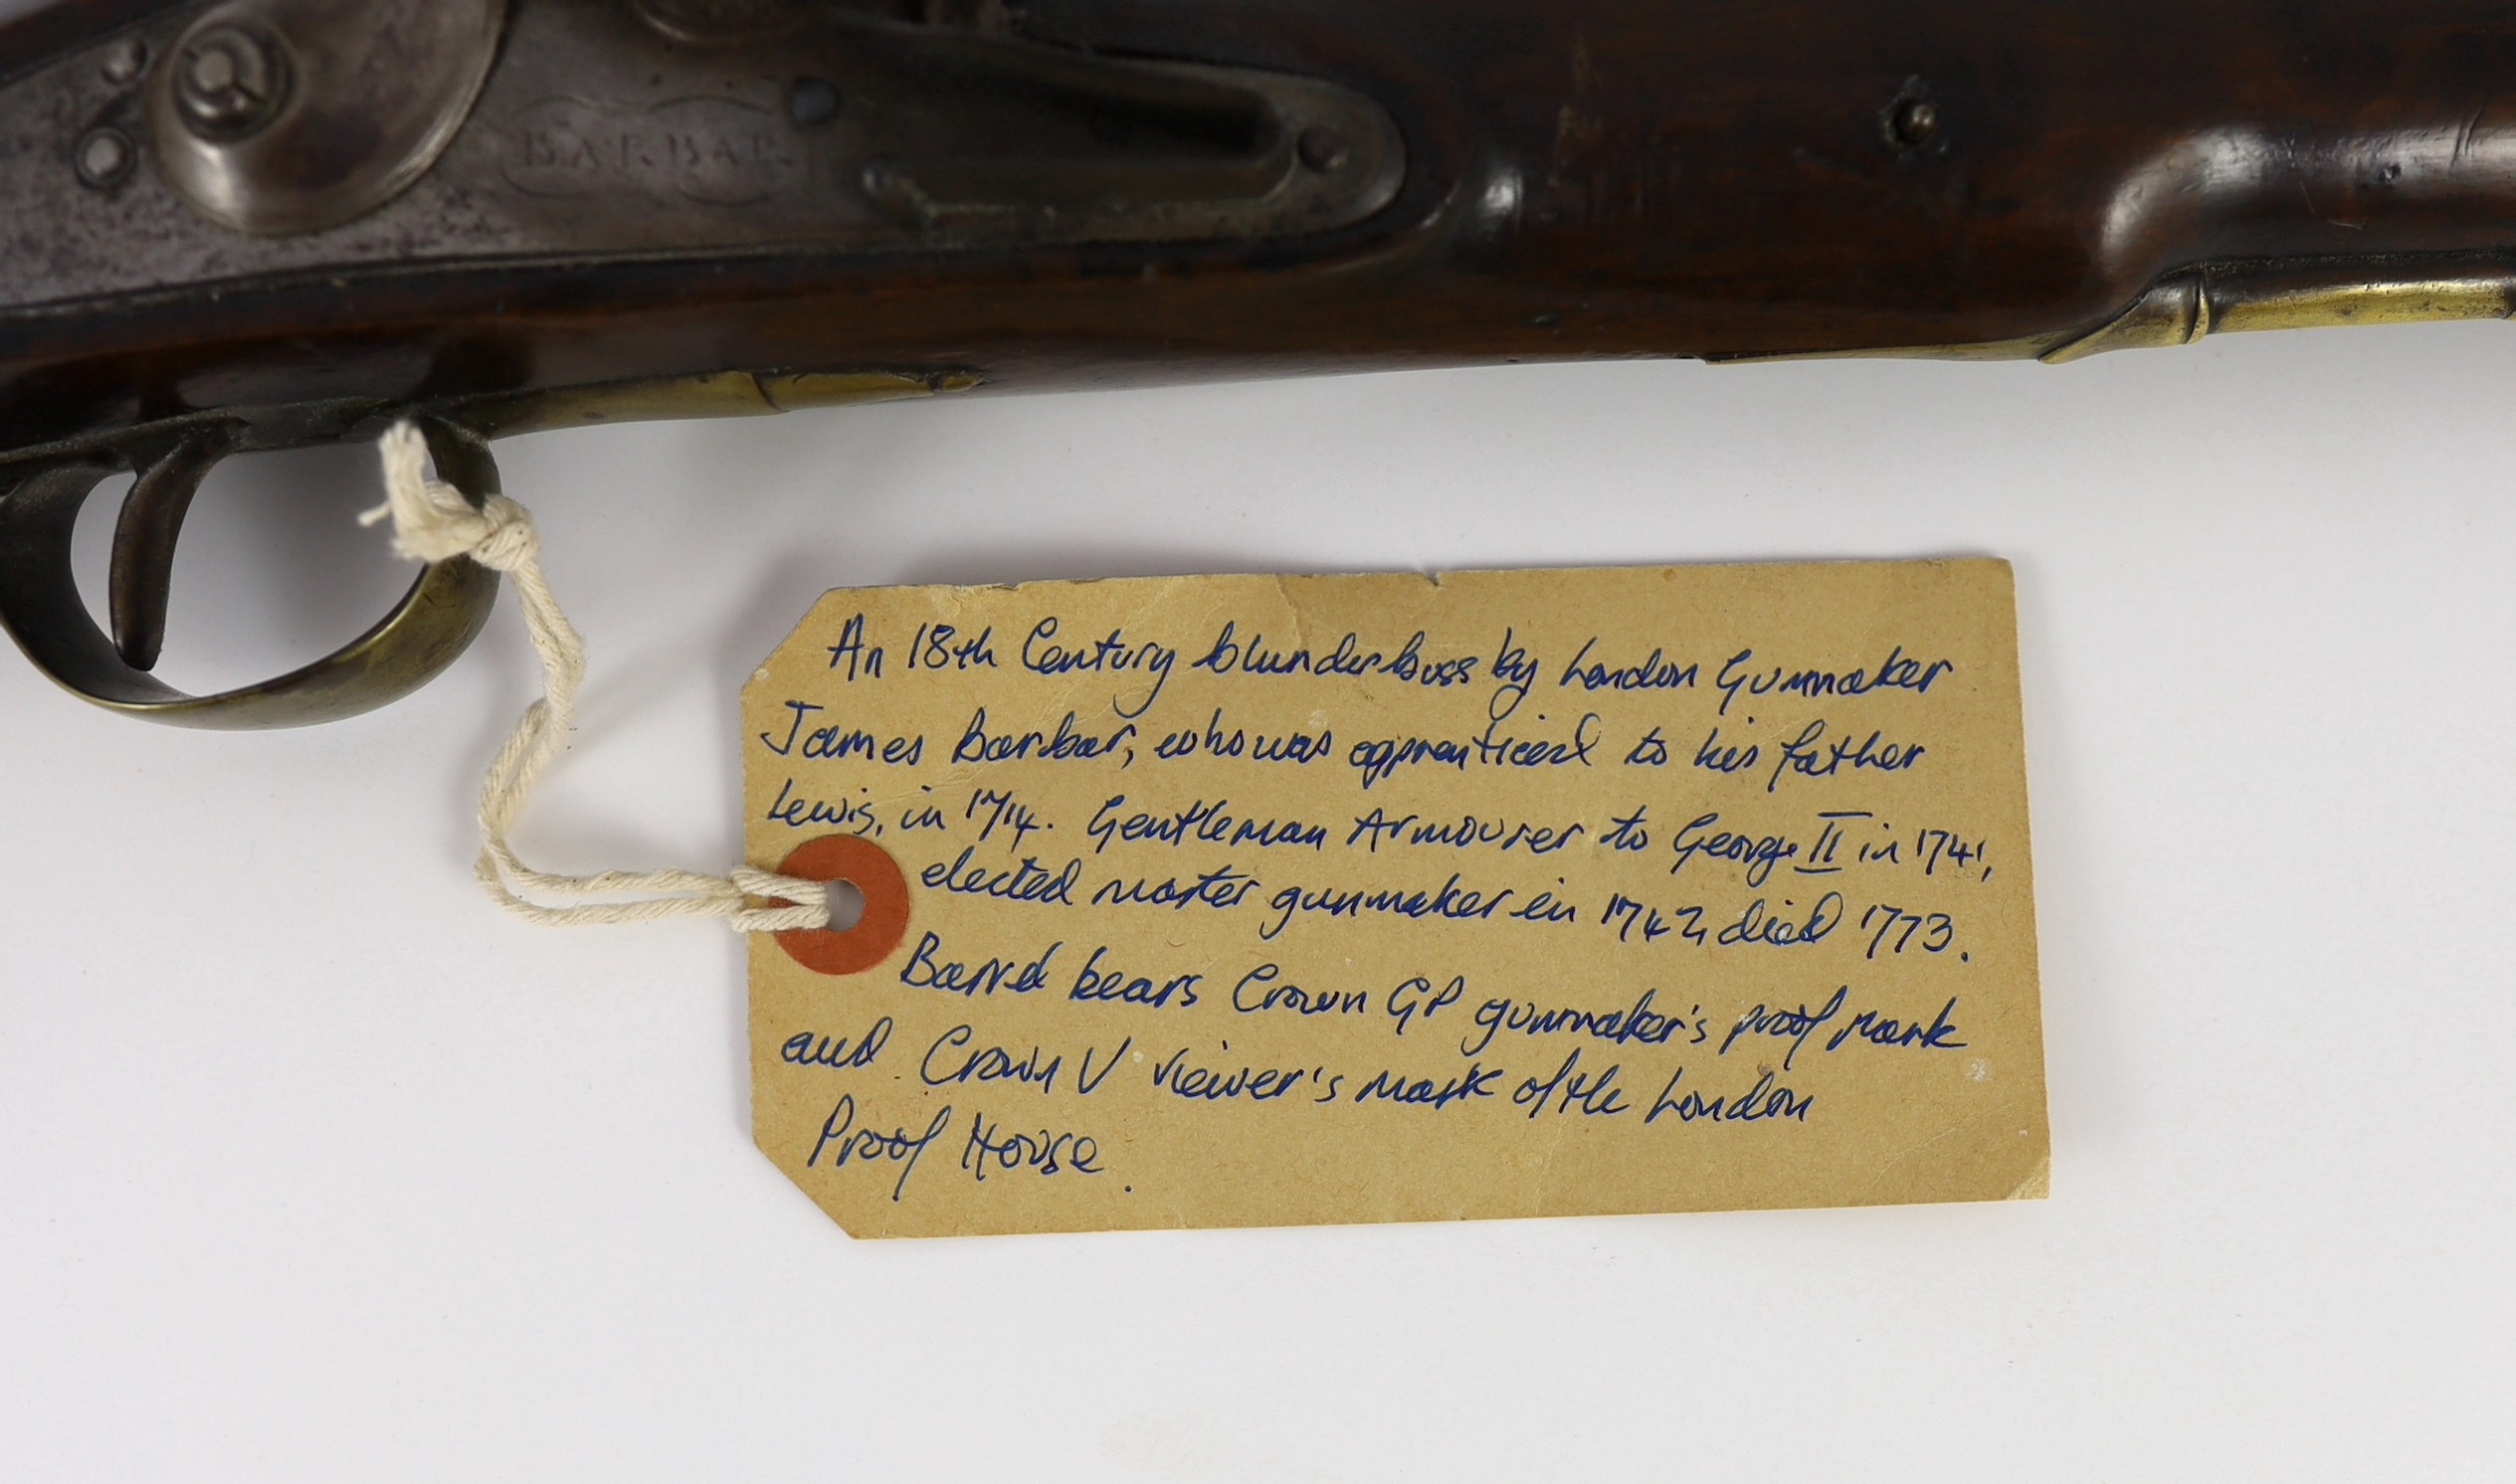 BARBAR
An 18th Century blunderbuss by London Gunmaker
James Barbar, who was apprenticed to his father
Lewis, in 1714. Gentleman Armourer to George II in 1741,
elected master gunmaker in 1742, died 1773.
Barrel bears Crown GP gunmaker's proof mark
and Crown V viewer's mark of the London
Proof House.